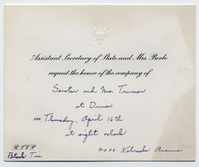 Assistant Secretary of State and Mrs. Berle
request the honor of the company of
Senator and Mrs. Truman
at Dinner
on Thursday, April 16th
at eight o'clock
R.S.V.P.
Black Tie
4000 Nebraska Avenue